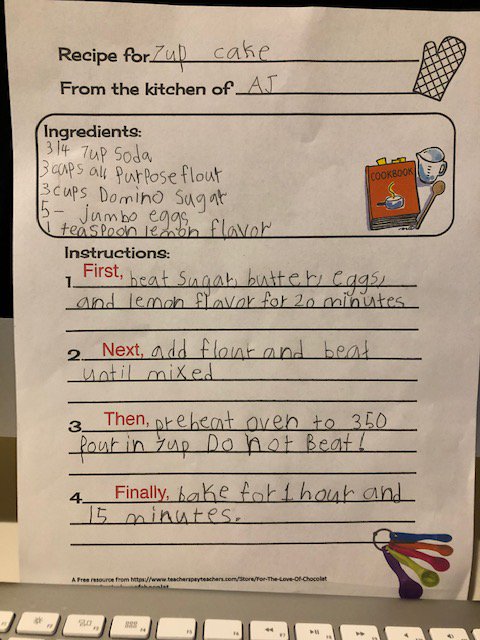 Recipe for 7up cake
From the kitchen of AJ
Ingredients:
3/4 7up Soda
3 cups all Purpose flour
3 cups Domino Sugar
5 - jumbo eggs
1 teaspoon lemon flavor
COOKBOOK
Instructions:
1 First, beat sugar, butter, eggs,
and lemon flavor for 20 minutes
2 Next, add flour and beat
until mixed
3 Then, preheat oven to 350
Pour in 7up Do not Beat!
4 Finally, bake for 1 hour and
15 minutes.
A Free resource from https://www.teacherspayteachers.com/Store/For-The-Love-Of-Chocolat